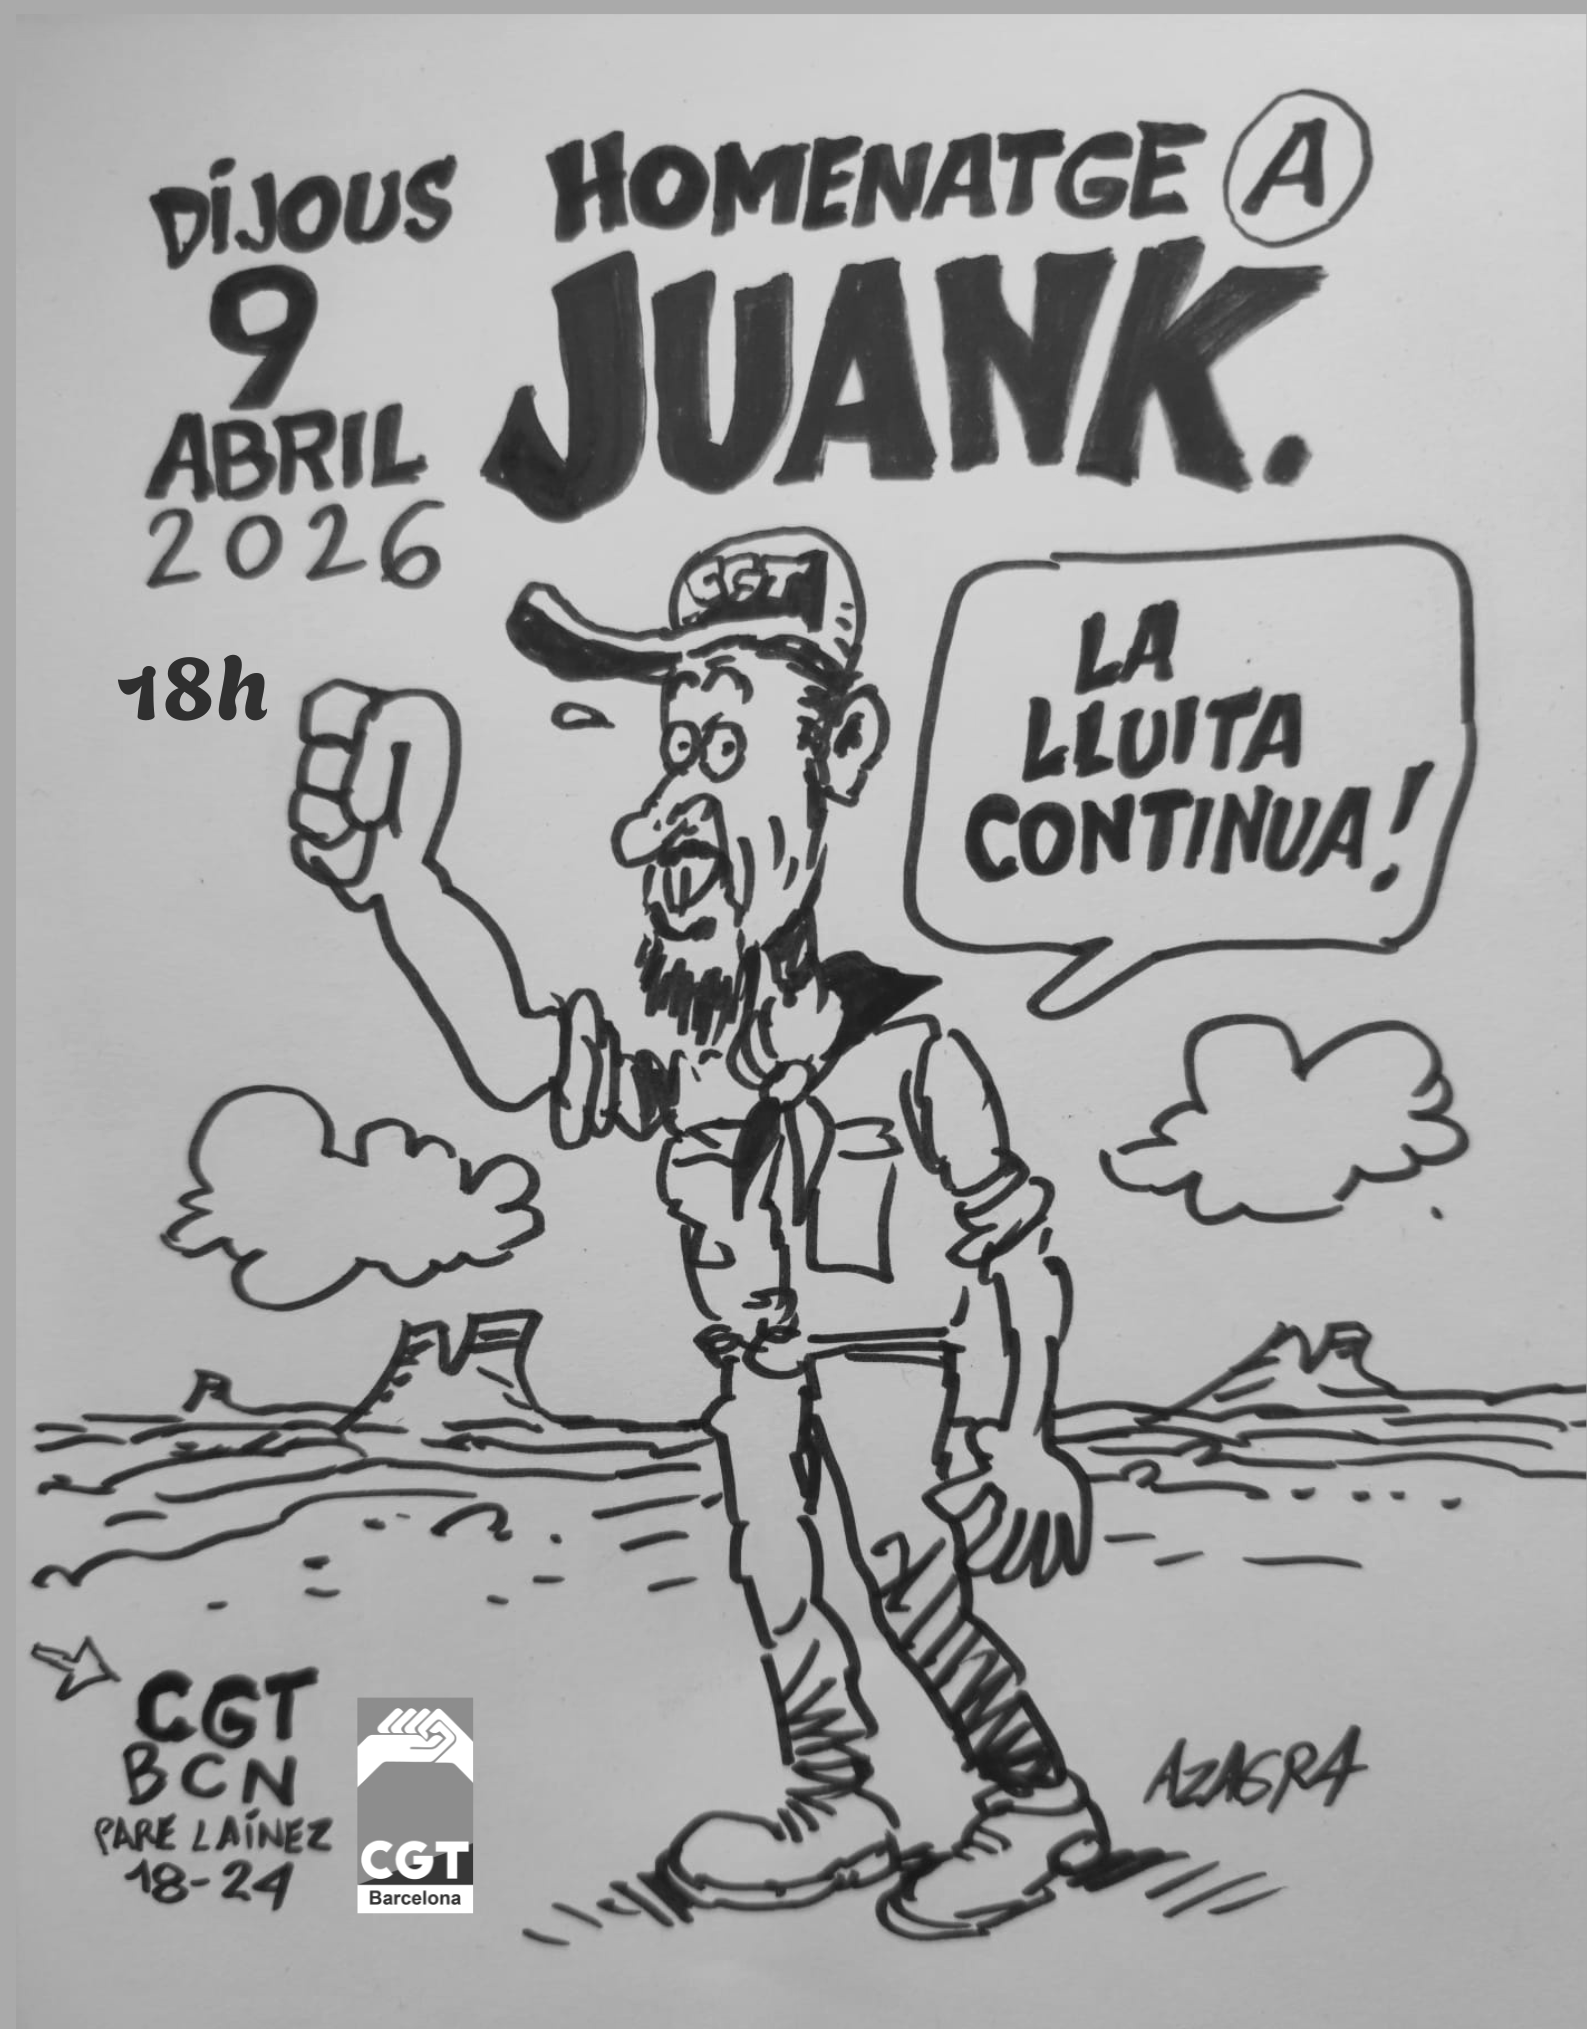 DİJOUS
9
ABRIL
2026
18h
HOMENATGE A
JUANK.
CGT
LA
LLUITA
CONTINUA!
CGT
BCN
PARE LAÍNEZ
18-24
CGT
Barcelona
AZAGRA